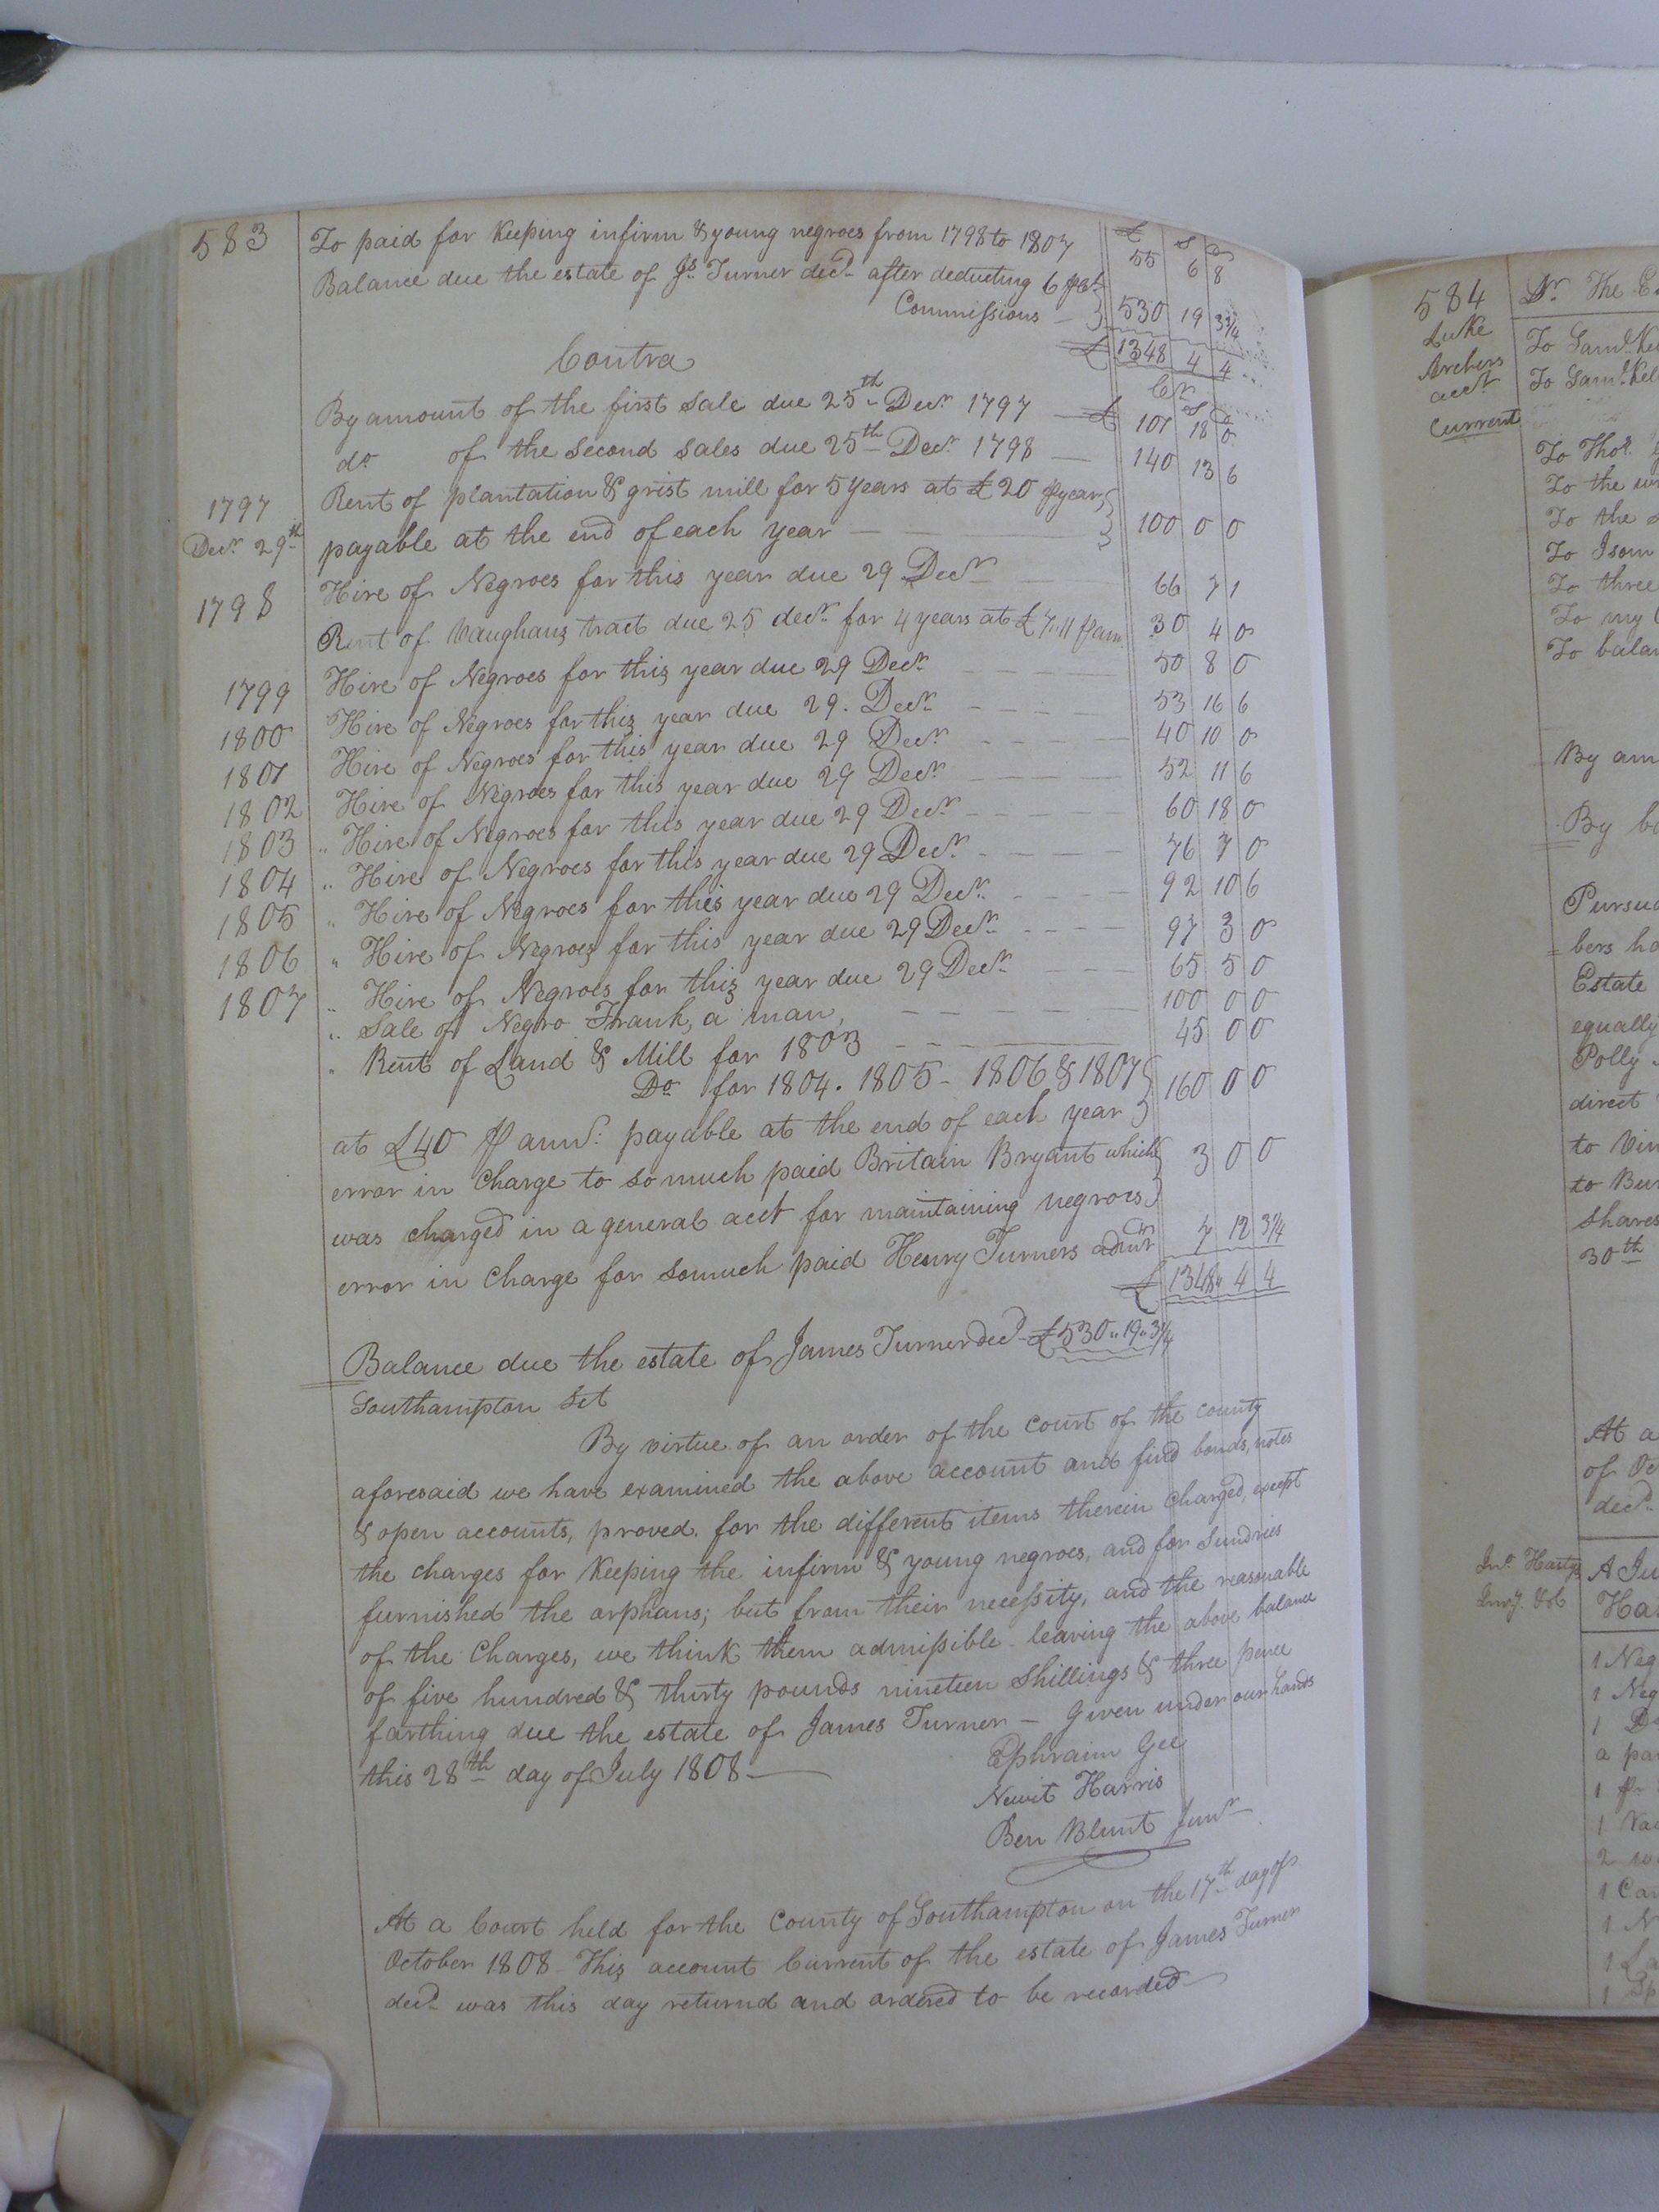 583
To paid for Keeping infirm & young negroes from 1798 to 1807 55 6 8
£ S D
Balance due the estate of Js. Turner decd. after deducting 6 pct.
Commissions 530 19 3¼
£ 1348 4 4
Contra Cr
By amount of the first sale due 25th Decr 1797 £ 107 18 0
do of the second sales due 25th Decr 1798 140 13 6
1797 Rent of plantation & grist mill for 5 years at £20 p year,
Decr 29th payable at the end of each year 100 0 0
1798 Hire of Negroes for this year due 29 Decr 66 7 1
Rent of Vaughans tract due 25 decr for 4 years at £7.11 p ann. 30 4 0
1799 Hire of Negroes for this year due 29 Decr 50 8 0
1800 Hire of Negroes for this year due 29. Decr 53 16 6
1801 Hire of Negroes for this year due 29 Decr 40 10 0
1802 Hire of Negroes for this year due 29 Decr 52 11 6
1803 " Hire of Negroes for this year due 29 Decr 60 18 0
1804 " Hire of Negroes for this year due 29 Decr 76 7 0
1805 " Hire of Negroes for this year due 29 Decr 92 10 6
1806 " Hire of Negroes for this year due 29 Decr 97 3 0
1807 " Hire of Negroes for this year due 29 Decr 65 5 0
" Sale of Negro Frank, a man, 100 0 0
" Rent of Land & Mill for 1803 45 0 0
Do for 1804. 1805 - 1806 & 1807
at £40 p ann: payable at the end of each year 160 0 0
error in Charge to so much paid Britain Bryant which
was charged in a general acct for maintaining negroes 3 0 0
error in Charge for somuch paid Henry Turners admr 7 12 3¼
£ 1348 4 4
Balance due the estate of James Turner decd £530 " 19 " 3¼
Southampton Sct
By virtue of an order of the court of the county
aforesaid we have examined the above account and find bonds, notes
& open accounts, proved. for the different items therein charged, except
the charges for Keeping the infirm & young negroes, and for Sundries
furnished the orphans; but from their necessity, and the reasonable
of the Charges, we think them admissible - leaving the above balance
of five hundred & thirty pounds nineteen Shillings & three pence
farthing due the estate of James Turner - Given under our hands
this 28th day of July 1808
Ephraim Gee
Newit Harris
Ben Blunt Junr
At a Court held for the County of Southampton on the 17th day of
October 1808 - This account Current of the estate of James Turner
decd was this day returnd and ordered to be recorded
584
Luke
Archers
acct
Current
Dr The
To Saml.
To Saml.
To Thos.
To the
To the
To Isom
To three
To my
To
By
By
Pursu
bers
Estate
equally
Polly
direct
to
to
shares
30th
At a
of
decd.
Jno. Harty
A
1 Neg
1 Neg
1
a
1 pr
1
2
1
1
1
1